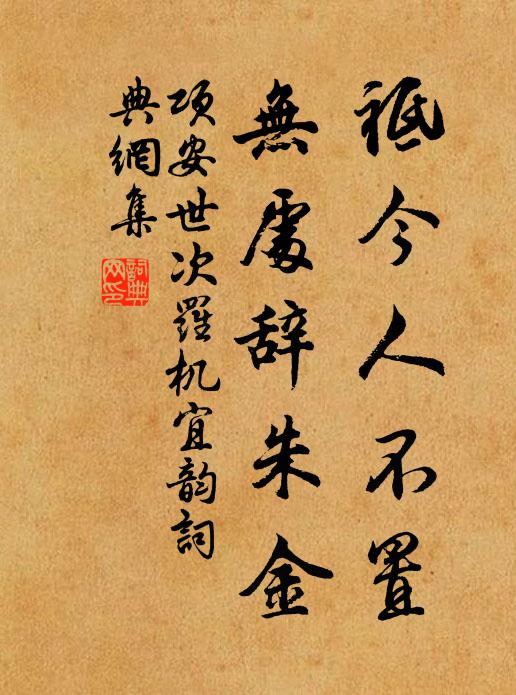 祗今人不置
無處辞朱金
項安世次羅机宜韵詞
典網集
詞典網印